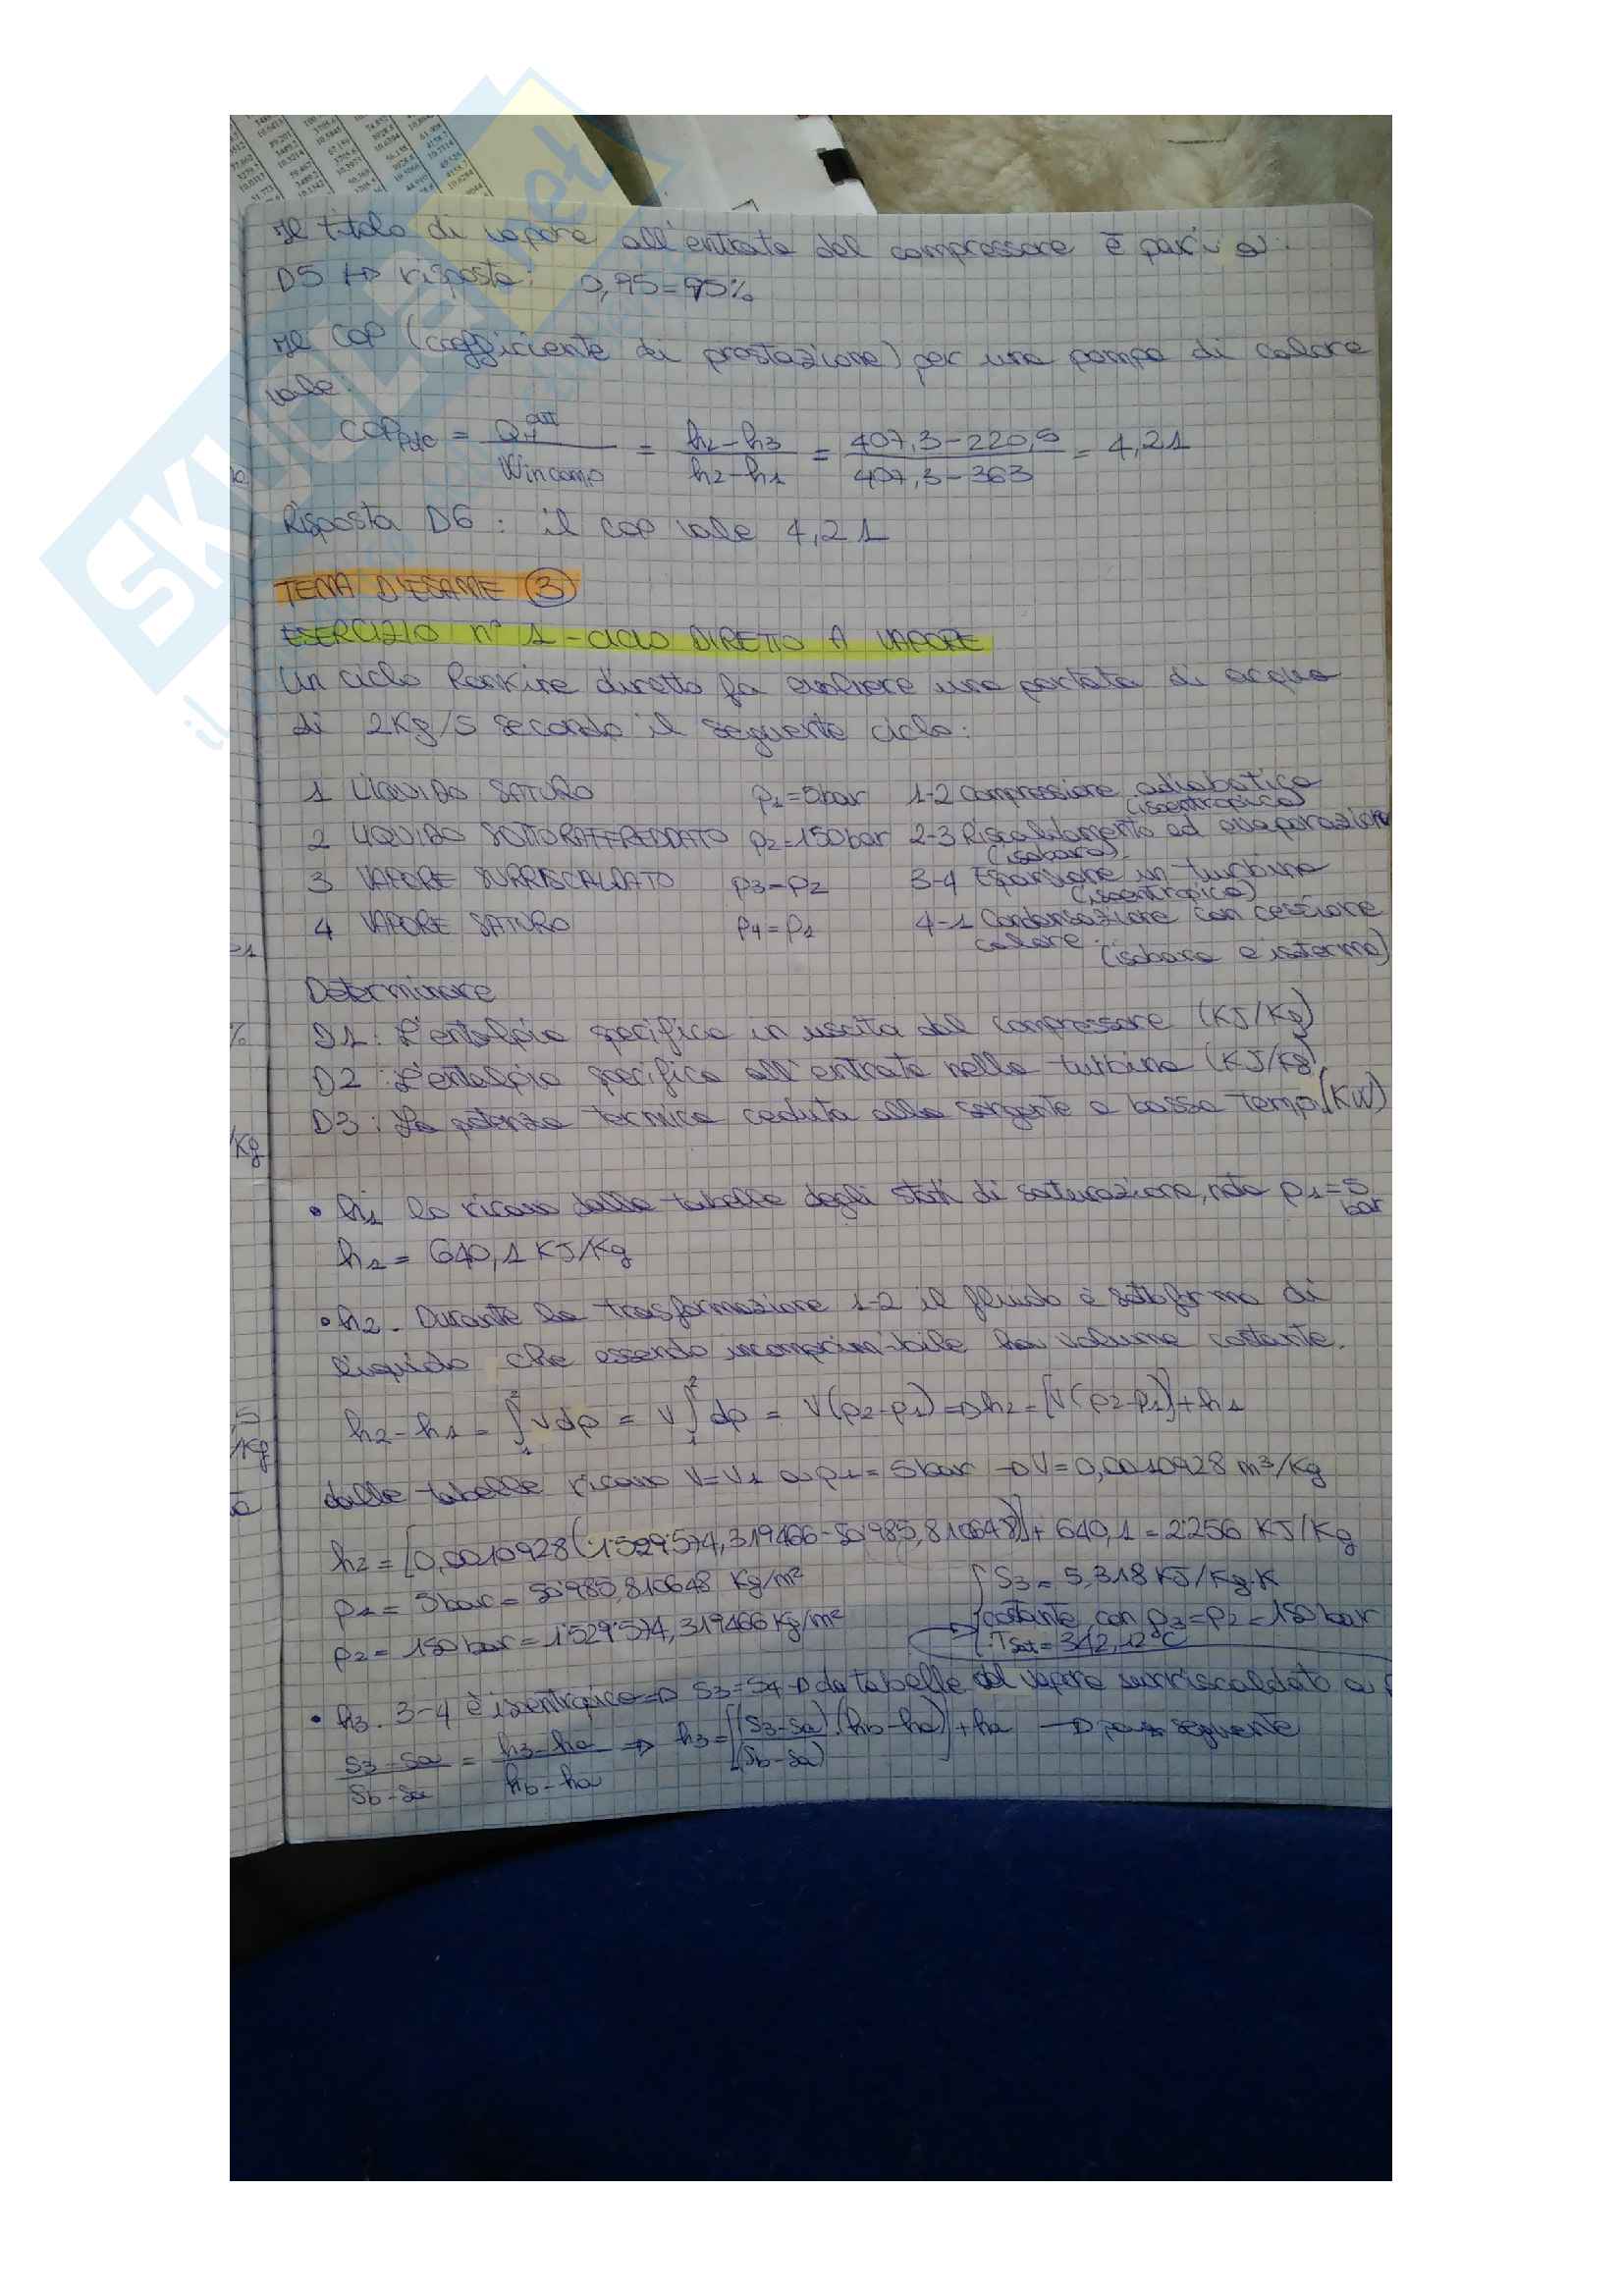 Il titolo di vapore all'entrata del compressore è pari a:
D5 → risposta: 0,95=95%
Il COP (coefficiente di prestazione) per una pompa di calore
vale:
COP PdC = Q out / W in comp = h2-h3 / h2-h1 = 407,3-220,5 / 407,3-363 = 4,21
Risposta D6: il COP vale 4,21
TEMA D'ESAME 3
ESERCIZIO n° 1 - CICLO DIRETTO A VAPORE
Un ciclo Rankine diretto fa evolvere una portata di acqua
di 2Kg/s secondo il seguente ciclo:
1 LIQUIDO SATURO p1=5bar 1-2 Compressione adiabatica (isoentropica)
2 LIQUIDO SOTTORAFFREDDATO p2=150bar 2-3 Riscaldamento ed evaporazione (isobara)
3 VAPORE SURRISCALDATO p3=p2 3-4 Espansione in turbina (isoentropica)
4 VAPORE SATURO p4=p1 4-1 Condensazione con cessione
calore. (isobara e isoterma)
Determinare
D1: L'entalpia specifica in uscita dal compressore (KJ/Kg)
D2: L'entalpia specifica all'entrata nella turbina (KJ/Kg)
D3: La potenza termica ceduta alla sorgente a bassa temp. (KW)
• h1 lo ricavo dalle tabelle degli stati di saturazione, nota p1=5 bar
h1 = 640,1 KJ/Kg
• h2. Durante la trasformazione 1-2 il fluido è sottoforma di
liquido che essendo incomprimibile ha volume costante.
h2-h1 = ∫₁² vdp = v ∫₁² dp = v(p2-p1) ⇒ h2 = [v(p2-p1)]+h1
dalle tabelle ricavo v=v1 a p1=5bar → v=0,0010928 m³/Kg
h2 = [0,0010928(1'529'574,319466-50'985,810648)]+640,1 = 2'256 KJ/Kg
p1 = 5bar = 50'985,810648 Kg/m²
p2 = 150bar = 1'529'574,319466 Kg/m²
S3 = 5,318 KJ/Kg·K
costante, con p3=p2=150bar
Tsat = 342,12°C
• h3. 3-4 è isentropica ⇒ S3=S4 → da tabelle del vapore surriscaldato a
S3-Sa / Sb-Sa = h3-ha / hb-ha ⇒ h3 = [(S3-Sa)/(Sb-Sa) · (hb-ha)] + ha → pag seguente
SKUOLA.net